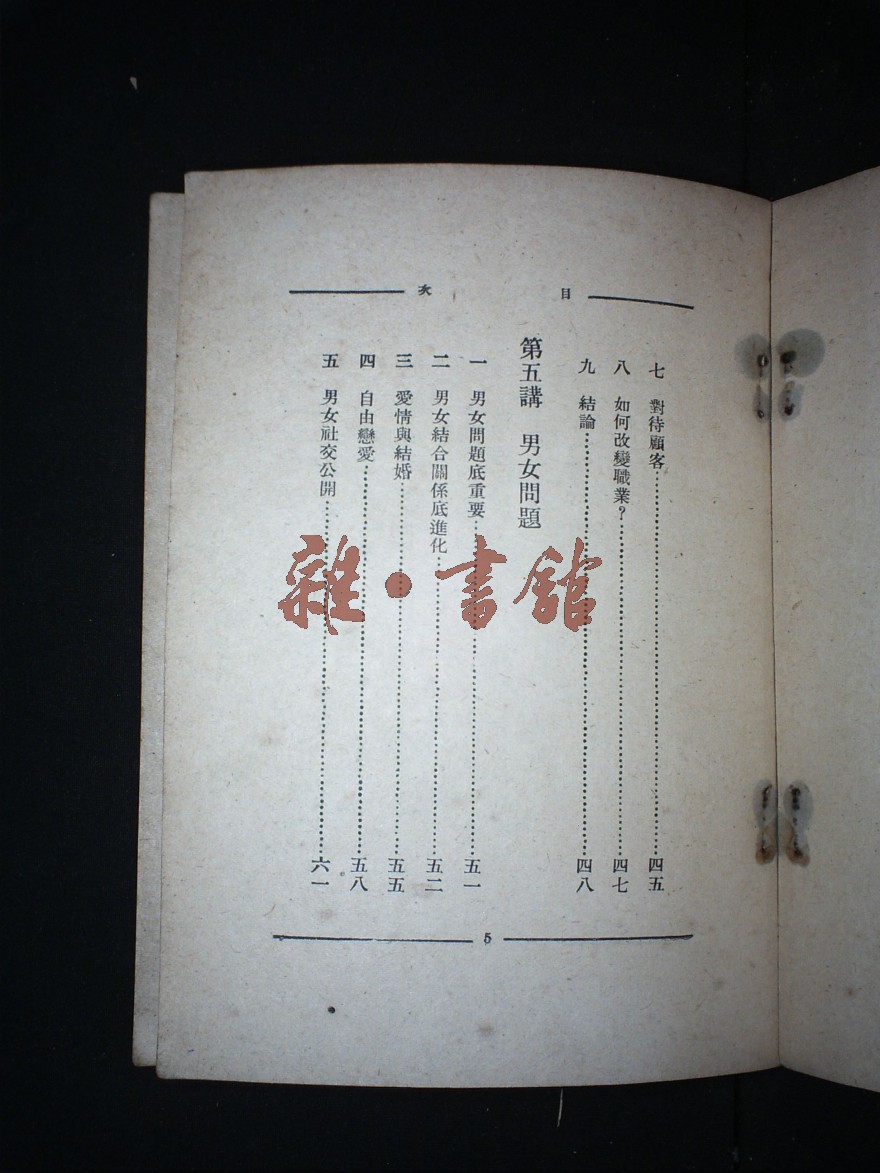 目次
七 對待顧客……四五
八 如何改變職業？……四七
九 結論……四八
第五講 男女問題
一 男女問題底重要……五一
二 男女結合關係底進化……五二
三 愛情與結婚……五五
四 自由戀愛……五八
五 男女社交公開……六一
5
雜·書館